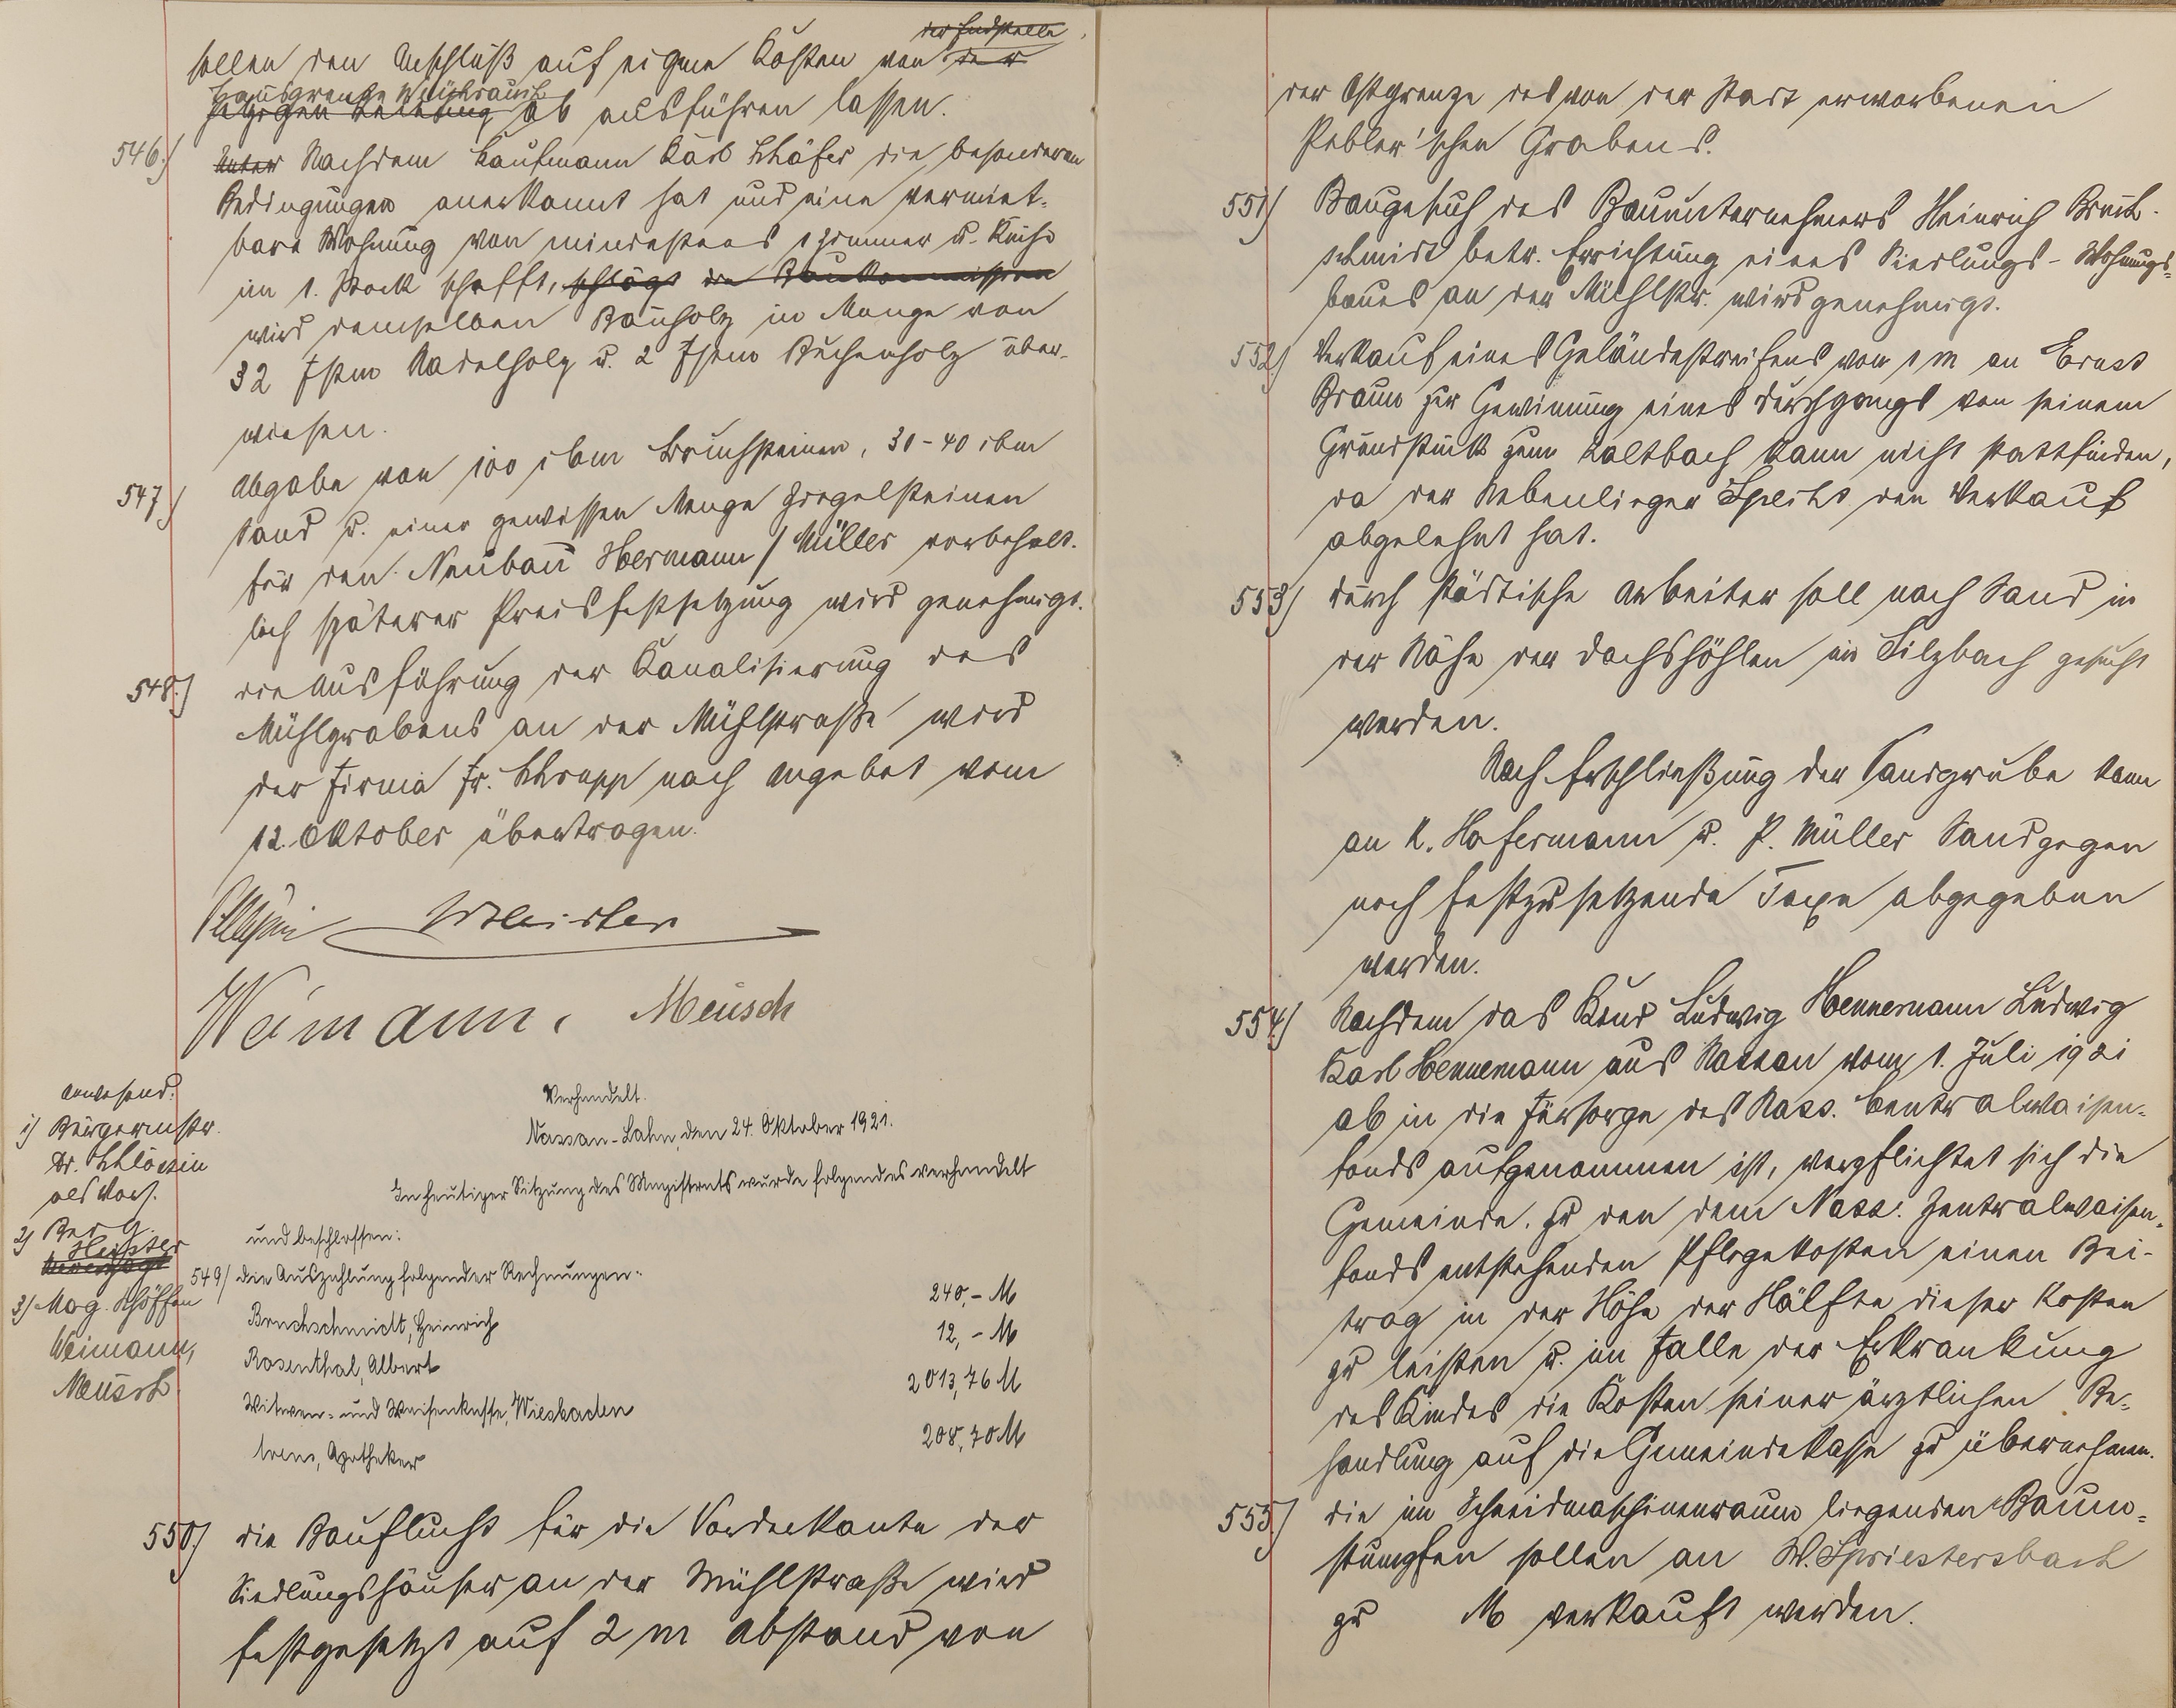 der Endstelle
sollen den Anschluß auf eigene Kosten von der
Hausgrenze Weihrauch
jetzigen Leitung ab ausführen lassen.
546.) Unter Nachdem Kaufmann Karl Schäfer die besonderen
Bedingungen anerkannt hat und eine vermiet-
bare Wohnung von mindestens 1 Zimmer u. Küche
im 1. Stock schafft, schlägt die Baukommission
wird demselben Bauholz in Menge von
32 Fstm Nadelholz u. 2 Fstm Buchenholz über-
wiesen.
547.) Abgabe von 100 cbm Bruchsteinen, 30-40 cbm
Sand u. einer gewissen Menge Ziegelsteinen
für den Neubau Hermann/Müller vorbehalt-
lich späterer Preisfestsetzung wird genehmigt.
548.) Die Ausführung der Kanalisierung des
Mühlgrabens an der Mühlstraße wird
der Firma Fr. Schrupp nach Angebot vom
12. Oktober übertragen.
Meister
Weimann, Meusch
Verhandelt.
Nassau-Lahn, den 24. Oktober 1921.
In heutiger Sitzung des Magistrats wurde folgendes verhandelt
und beschlossen:
Anwesend:
1) Bürgermstr.
Dr.
als Vors.
2) Beig.
3) Mag. Schöffen
Weimann,
Meusch
549/ die Auszahlung folgender Rechnungen:
Bruchschmidt, Heinrich 240,- M
Rosenthal, Albert 12,- M
Witwen- und Waisenkasse, Wiesbaden 2013,76 M
Apotheker 208,70 M
550.) Die Bauflucht für die Vorderkante der
Siedlungshäuser an der Mühlstraße wird
festgesetzt auf 2 m Abstand von
der Ostgrenze des von der Stadt erworbenen
Pebler'schen Grabens.
551/ Baugesuch des Bauunternehmers Heinrich Bruch-
schmidt betr. Errichtung eines Siedlungs-Wohnungs-
baues an der Mühlstr. wird genehmigt.
552/ Verkauf eines Geländestreifens von 1 m an Ernst
Braun zur Gewinnung eines Durchgangs von seinem
Grundstück zum Kaltbach kann nicht stattfinden,
da der Nebenlieger Specht den Verkauf
abgelehnt hat.
553/ Durch städtische Arbeiter soll nach Sand in
der Nähe der Dachshöhlen im Silzbach gesucht
werden.
Nach Erschließung der Sandgrube kann
an K. Hofermann u. P. Müller Sand gegen
noch festzusetzende Taxe abgegeben
werden.
554/ Nachdem das Kind Ludwig Hennemann Ludwig
Karl Hennemann aus Nassau vom 1. Juli 1921
ab in die Fürsorge des Nass. Centralwaisen-
fonds aufgenommen ist, verpflichtet sich die
Gemeinde, zu den dem Nass. Zentralwaisen-
fonds entstehenden Pflegekosten einen Bei-
trag in der Höhe der Hälfte dieser Kosten
zu leisten u. im Falle der Erkrankung
des Kindes die Kosten seiner ärztlichen Be-
handlung auf die Gemeindekasse zu übernehmen.
555/ Die im Schneidmaschinenraum liegenden Baum-
stumpfen sollen an W. Spriestersbach
zu M verkauft werden.